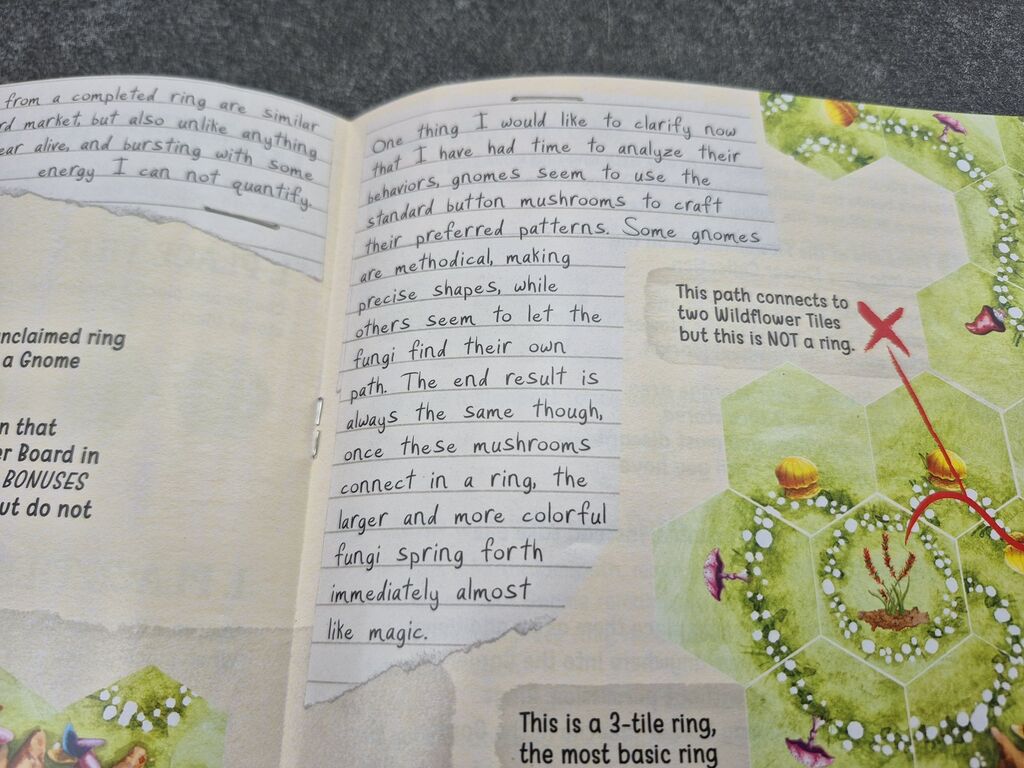 from a completed ring are similar
market, but also unlike anything
alive, and bursting with some
energy I can not quantify.
unclaimed ring
a Gnome
that
Board in
BONUSES
but do not
One thing I would like to clarify now
that I have had time to analyze their
behaviors, gnomes seem to use the
standard button mushrooms to craft
their preferred patterns. Some gnomes
are methodical, making
precise shapes, while
others seem to let the
fungi find their own
path. The end result is
always the same though,
once these mushrooms
connect in a ring, the
larger and more colorful
fungi spring forth
immediately almost
like magic.
This path connects to
two Wildflower Tiles
but this is NOT a ring.
This is a 3-tile ring,
the most basic ring